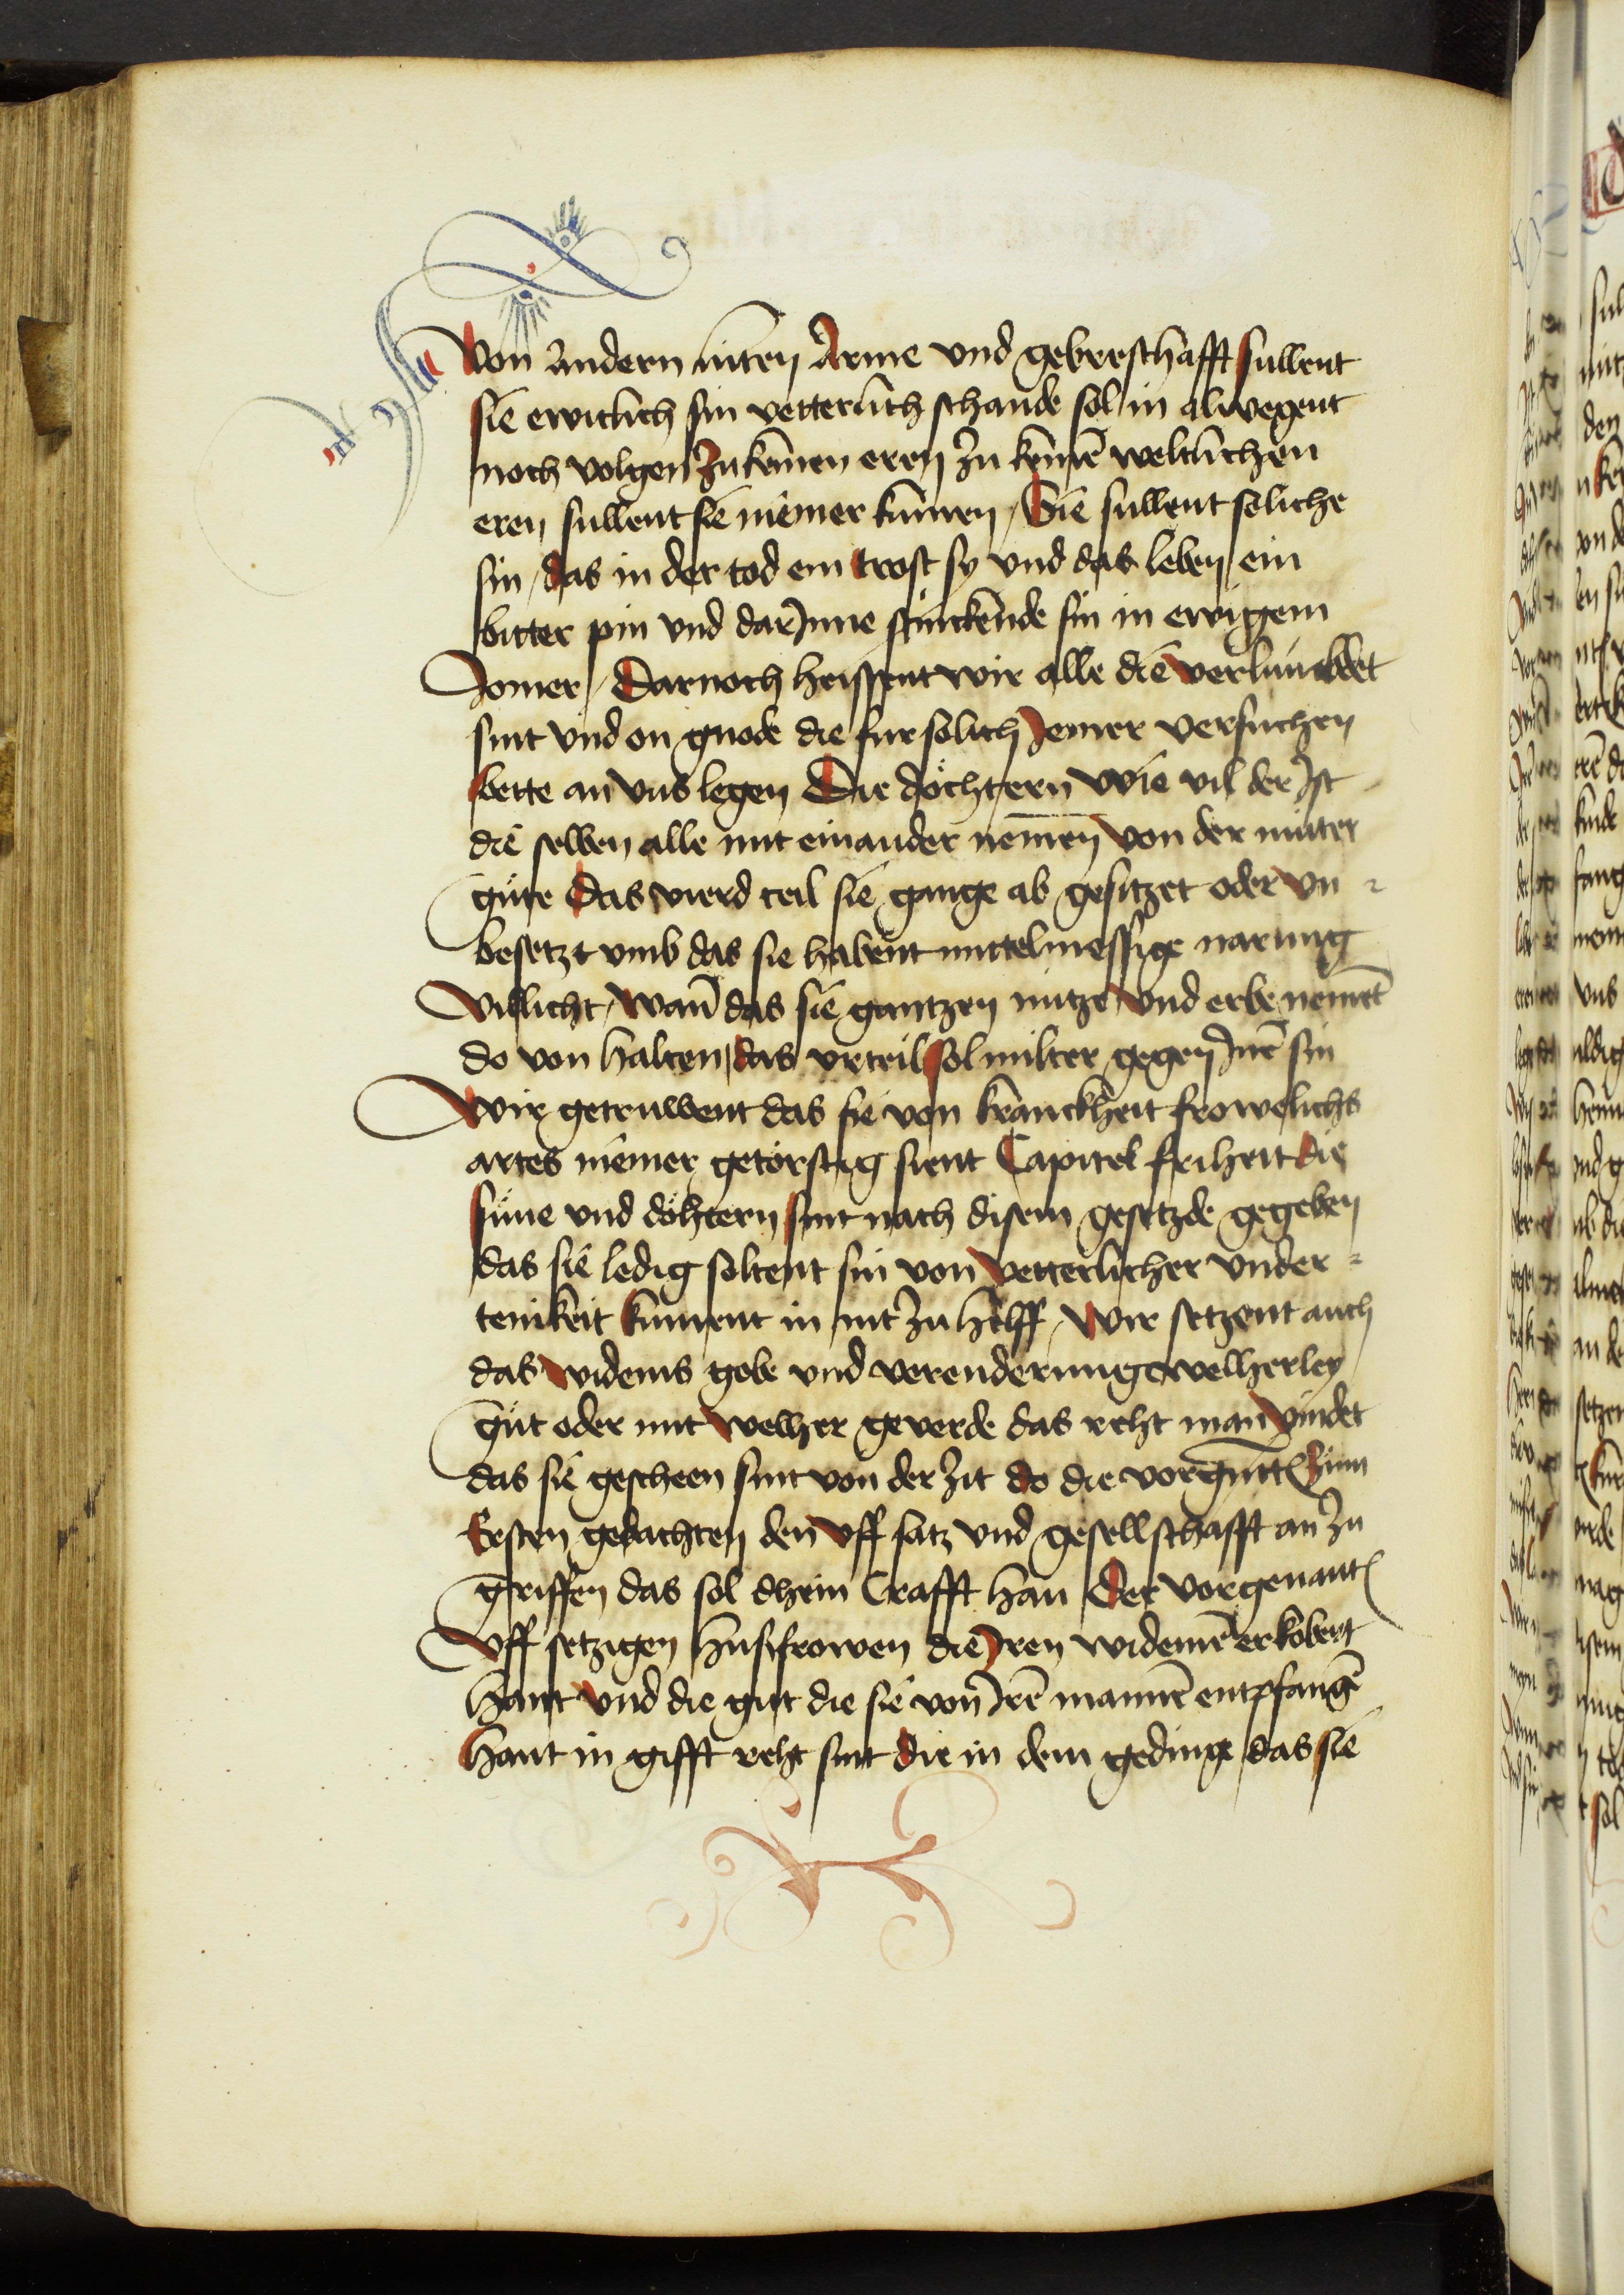 Von andern luten Arme vnd gebresthafft sullent
sie ewiclich sin vetterlich schande sol in alwegent
noch volgen zu keinen eren zu keinē weltlichen
eren sullent sie niemer kumen / Sie sullent soliche
sin / das in der tod ein trost sy vnd das leben ein
bitter pin vnd dar Inne stinckende sin in ewigem
Jomer / Darnoch heissent wir alle die verlumbdet
sint vnd on gnode die fur solich Jemer versuchen
bette an vns legen Die döchtern wie vil der Ist
die selben alle mit einander nemen von der muter
güte das vierd teil sie gange ab gesitzet oder vn
besetzt vmb das sie habent mittelmessige narung
villicht / wañ das sie gantzen nutze vnd erbe nemēt
do von halten / das vrteil sol milter gegen Inē sin
Wir getruwent das sie von kranckheit frowelichs
artes niemer getörstig sient Capitel friheit die
süne vnd döhtern sint nach disem gesetzde gegeben
das sie ledig soltent sin von vetterlicher vnder
tenikeit kument in nit zu helff / Wir setzent auch
das widems gobe vnd verenderunge welherley
güt oder mit welher geverde das reht man vindet
das sie gescheen sint von der zit do die vorgnītē zum
Ersten gedachten den vff satz vnd gesellschafft an zu
griffen das sol dhein Crafft han Der vorgenantē
Vff setzigen husfrowen die Iren widemē erkobert
hant vnd die gut die sie von Irē mannē entpfangē
hant in gifft reht sint die in dem gedinge das sie